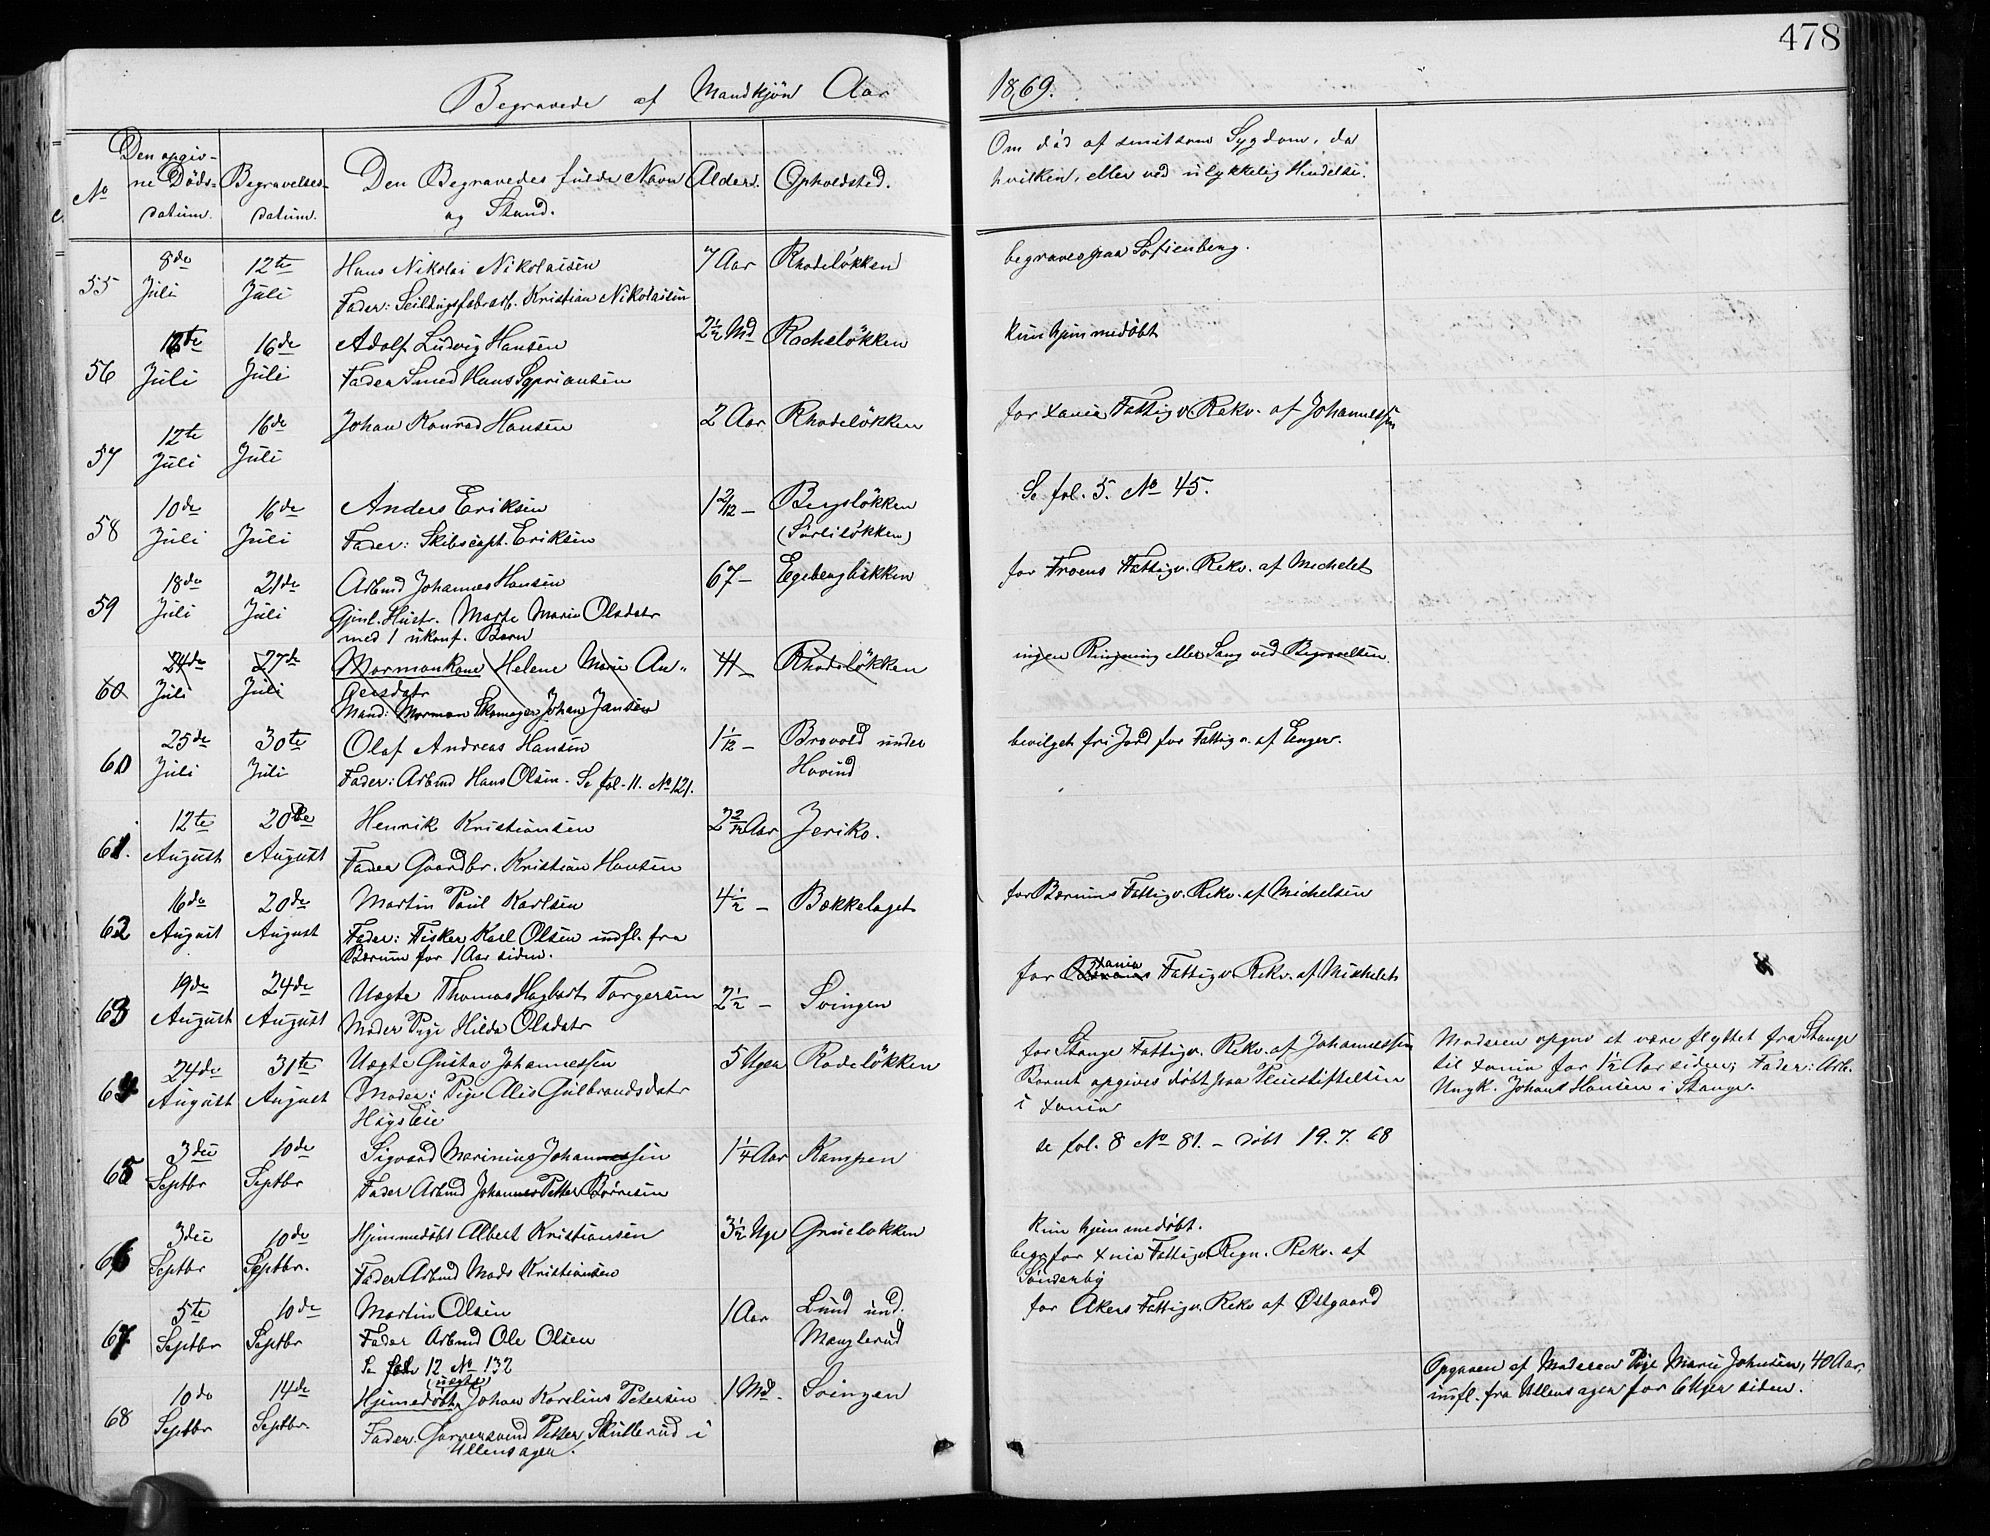 478
Begravede af Mandkjön Aar 1869.
No
Den opgivne Döds-datum.
Begravelses-datum.
Den Begravedes fulde Navn og Stand.
Alder.
Opholdsted.
Om död af smitsom Sygdom, da
hvilken, eller ved ulykkelig Hendelse.
55 8de Juli 12te Juli Hans Nikolai Nikolaisen 7 Aar Rhodelökken begraves paa Sofienberg.
Fader: Seildugsfabrarb. Kristian Nikolaisen
56 Juli 16de Juli Adolf Ludvig Hansen 2½ Md Rodelökken kun hjemmedöbt
Fader Smed Hans Syversen
57 12te Juli 16de Juli Johan Konrad Hansen 2 Aar Rhodelökken for Xania Fattigv. Rekv. af Johannessen
58 10de Juli 16de Juli Anders Eriksen 1 2/12 – Bergslökken Se fol. 5. No 45.
Fader: Skibscapt. Eriksen (Sörlilökken)
59 18de Juli 21de Juli Arbmd Johannes Hansen 67 – Egeberglökken for Froens Fattigv. Rekv. af Michelet
Gjenl. Hustr. Marte Marie Olsdatr
med 1 ukonf. Barn
60 24de Juli 27de Juli Mormonkone Helene Marie An- 41 – Rhodelökken ingen Ringning eller Sang ved Begravelsen.
dersdatr
Mand: Mormon Skomager Johan Jansen
60 25de Juli 30te Juli Olaf Andreas Hansen 1 1/12 – Brovold under bevilget fri Jord for Fattigv. af Enger.
Fader: Arbmd Hans Olsen. Se fol. 11. No 121. Hovind
61. 12te August 20de August Henrik Kristiansen 2 2/12 Aar Jeriko.
Fader Gaardbr. Kristian Hansen
62 16de August 20de August Martin Paul Karlsen 4½ – Bækkelaget for Bærums Fattigv. Rekv. af Michelsen
Fader: Fisker Karl Olsen indfl. fra
Bærum for 1 Aar siden.
63 19de August 24de August Uægte Thomas Hagbart Torgersen 2½ – Svingen for Xania Fattigv Rekv. af Michelet
Moder Pige Hilda Olsdatr
64 24de August 31te August Uægte Gustav Johannessen 5 Uger Rodelökken for Stange Fattigv. Rekv. af Johannessen
Moder: Pige Alis Gulbrandsdatr
Barnet opgives döbt paa Pleiestiftelsen
i Xania
Moderen opgav at være flyttet fra Stange
til Xania for 1½ Aar siden; Fader: Arb.
Ungk. Johans Hansen i Stange.
65 3die Septbr 10de Septbr Sigvard Johannessen 1¼ Aar Kampen se fol. 8 No 81. – döbt 19. 7. 68
Fader Arbmd Johannes Petter Börresen
66 3die Septbr 10de Septbr. Hjemmedöbt Albert Kristiansen 3½ Uge Gruelökken kun hjemmedöbt.
Fader Arbmd Mads Kristiansen
begr for Xnia Fattigv. Regn. Rekv. af
Sönderby
67 5te Septbr 10de Septbr Martin Olsen 1 Aar Lund und. for Akers Fattigv. Rekv af Östgaard
Fader Arbmd Ole Olsen Manglerud
Se fol 12 No 132
68 10de Septbr 14de Septbr. Hjemmedöbt (uægte) Johan Karelius Petersen 1 Md. Svingen
Fader. Garversvend Petter Skullerud i
Ullensager.
Opgaven af Moderen Pige Marie Johnsen, 40 Aar,
indfl. fra Ullensager for 6 Uger siden.